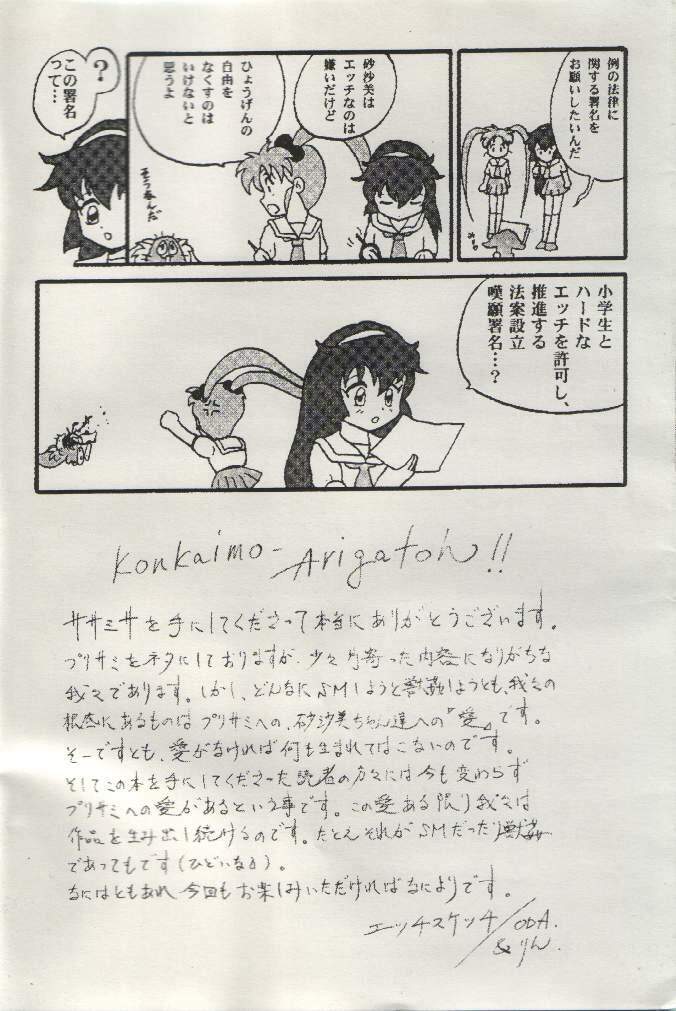 例の法律に
関する署名を
お願いしたいんだ
みゃ
砂沙美は
エッチなのは
嫌いだけど
ひょうげんの
自由を
なくすのは
いけないと
思うよ
?
この署名
って…
小学生と
ハードな
エッチを許可し、
推進する
法案設立
嘆願署名…?
Konkaimo-
Arigatoh!!
ササミサを手にしてくださって本当にありがとうございます。
プリサミをネタにしておりますが、少々片寄った内容になりがちな
我々であります。しかし、どんなにSMしようと獣姦しようとも、我々の
根底にあるものはプリサミへの、砂沙美ちゃん達への『愛』です。
そーですとも、愛がなければ何も生まれてはこないのです。
そしてこの本を手にしてくださった読者の方々には今も変わらず
プリサミへの愛があるという事です。この愛ある限り我々は
作品を生み出し続けるのです。たとえそれがSMだったり獣姦
であってもです(ひどいなぁ)。
なにはともあれ今回もお楽しみいただければなによりです。
エッチスケッチ/ODA.
&りん.